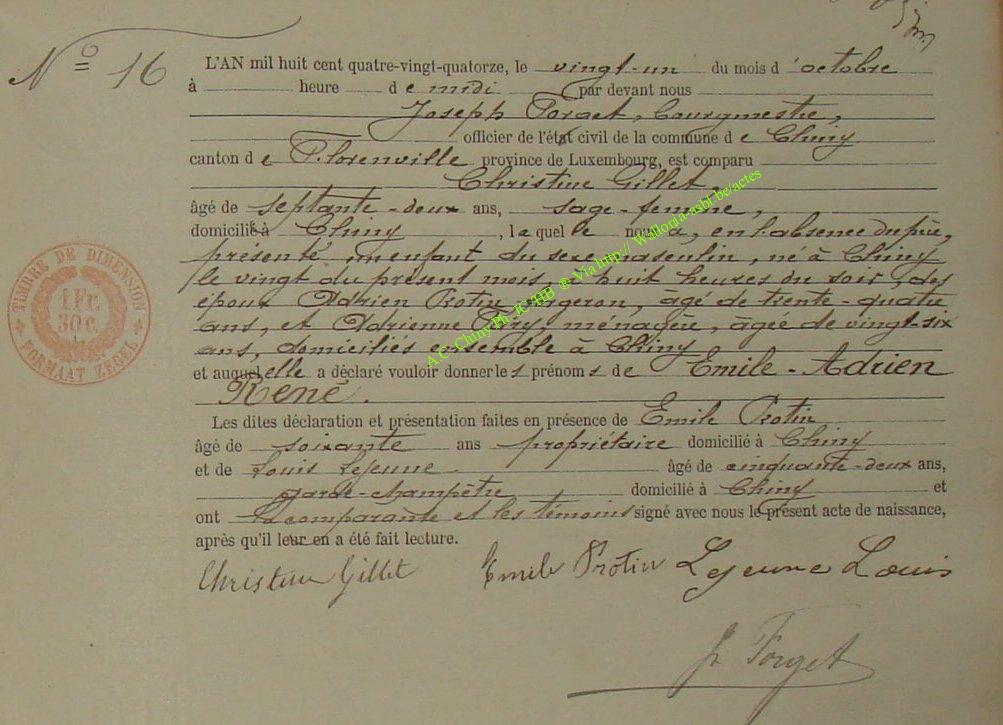 N° 16
L'AN mil huit cent quatre-vingt-quatorze, le vingt-un du mois d'octobre
à heure de midi par devant nous
Joseph Forget, bourgmestre,
officier de l'état civil de la commune de Chiny
canton de Florenville province de Luxembourg, est comparu
Christine Gillet,
âgé de septante-deux ans, sage-femme,
domicilié à Chiny, laquelle nous a, en l'absence du père,
présenté un enfant du sexe masculin, né à Chiny
le vingt du présent mois à huit heures du soir, des
époux Adrien Protin, forgeron, âgé de trente-quatre
ans, et Adrienne, ménagère, âgée de vingt-six
ans, domiciliés ensemble à Chiny
et auquel elle a déclaré vouloir donner les prénoms de Emile-Adrien
René.
Les dites déclaration et présentation faites en présence de Emile Protin
âgé de soixante ans propriétaire domicilié à Chiny
et de Louis Lejeune âgé de cinquante-deux ans,
garde-champêtre domicilié à Chiny et
ont la comparante et les témoins signé avec nous le présent acte de naissance,
après qu'il leur en a été fait lecture.
Christine Gillet Emile Protin Lejeune Louis
J. Forget
TIMBRE DE DIMENSION
1 Fr.
30 c.
FORMAAT ZEGEL
A C-Chiny Ph_JC_HB @ Via http:// Wallonia-asbl.be/actes